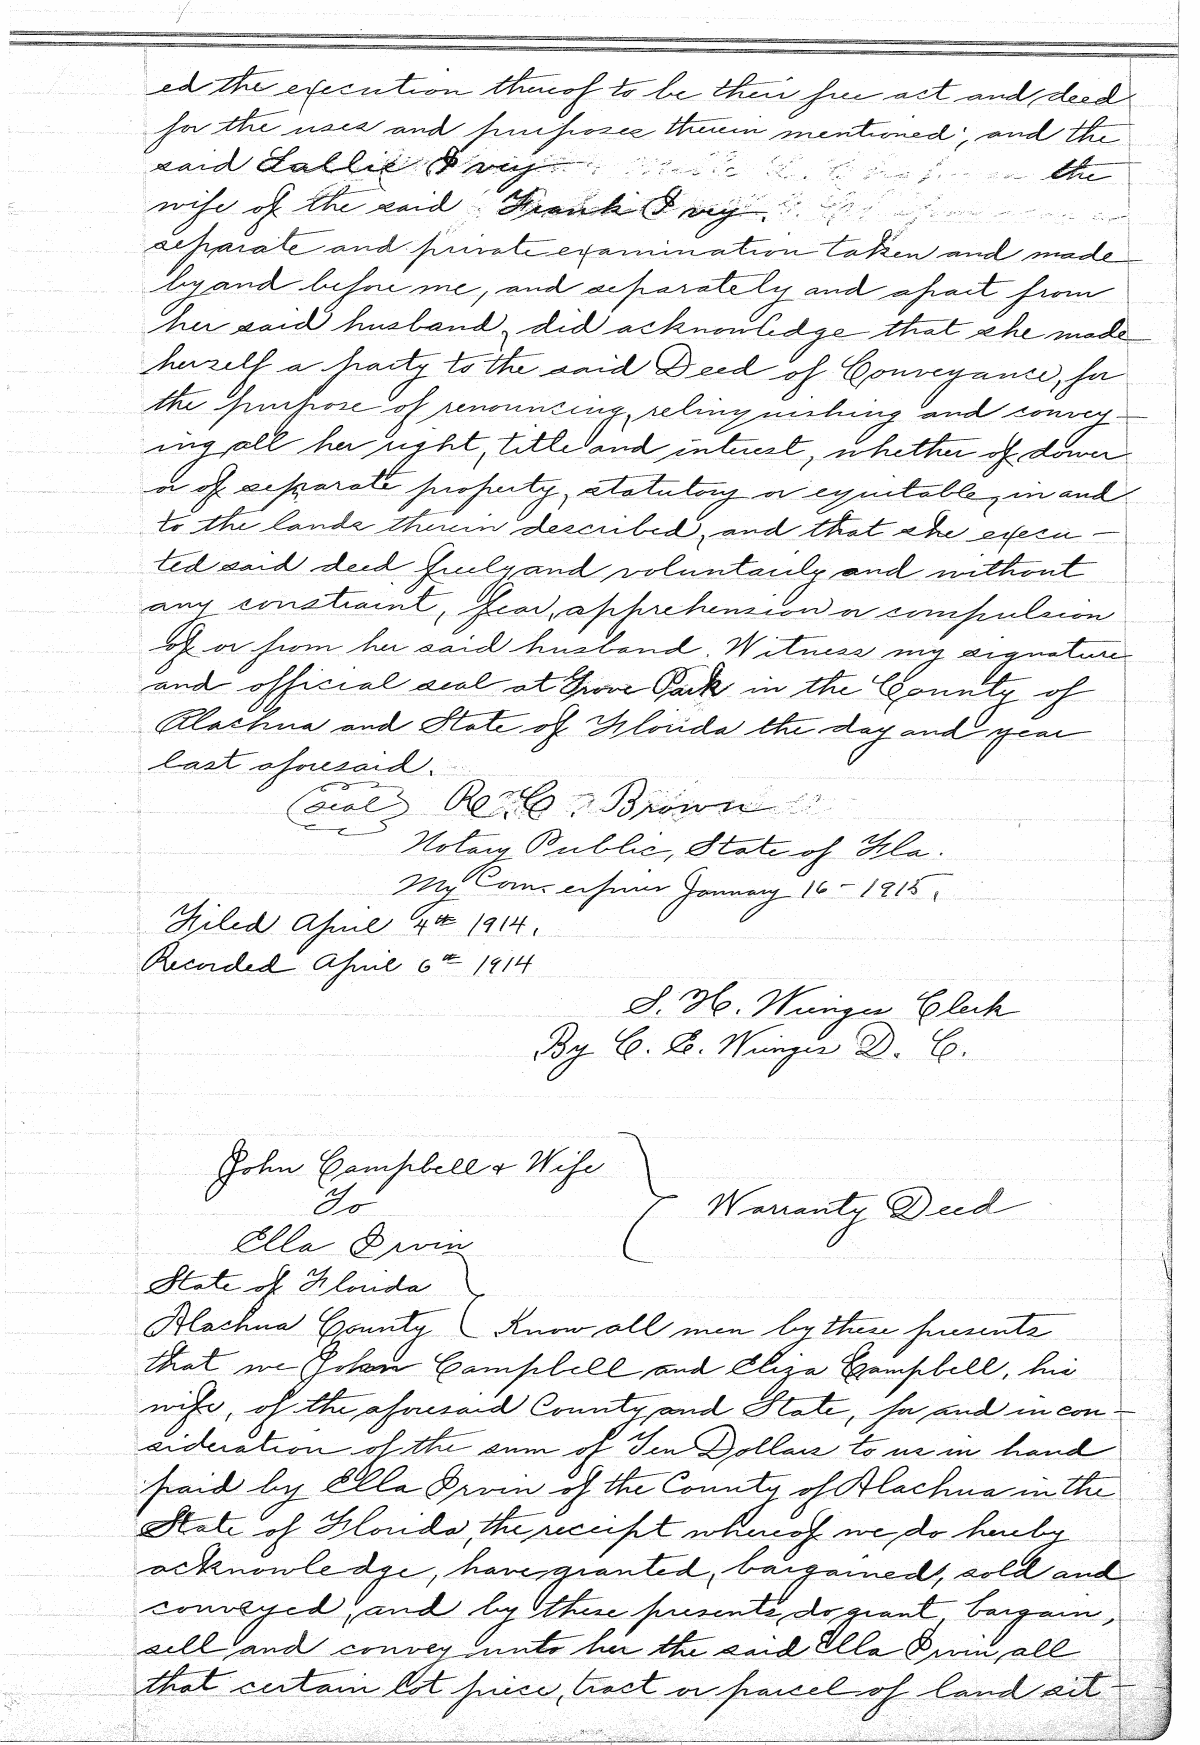 ed the execution thereof to be their free act and deed
for the uses and purposes therein mentioned; and the
said Lallie Ivey the
wife of the said Frank Ivey.
separate and private examination taken and made
by and before me, and separately and apart from
her said husband, did acknowledge that she made
herself a party to the said Deed of Conveyance, for
the purpose of renouncing, relinquishing and convey-
ing all her right, title and interest, whether of dower
or of separate property, statutory or equitable, in and
to the lands therein described, and that she execu-
ted said deed freely and voluntarily and without
any constraint, fear, apprehension or compulsion
of or from her said husband. Witness my signature
and official seal at Grove Park in the County of
Alachua and State of Florida the day and year
last aforesaid.
(seal) R. C. Brown
Notary Public, State of Fla.
My Com. expires January 16 - 1915.
Filed April 4th 1914.
Recorded April 6th 1914
S. H. Wienges Clerk
By C. E. Wienges D. C.
John Campbell & Wife
To
Warranty Deed
Ella Irvin
State of Florida
Alachua County Know all men by these presents
that we John Campbell and Eliza Campbell, his
wife, of the aforesaid County and State, for and in con-
sideration of the sum of Ten Dollars to us in hand
paid by Ella Irvin of the County of Alachua in the
State of Florida, the receipt whereof we do hereby
acknowledge, have granted, bargained, sold and
conveyed, and by these presents, do grant, bargain,
sell and convey unto her the said Ella Irvin, all
that certain lot piece, tract or parcel of land sit-